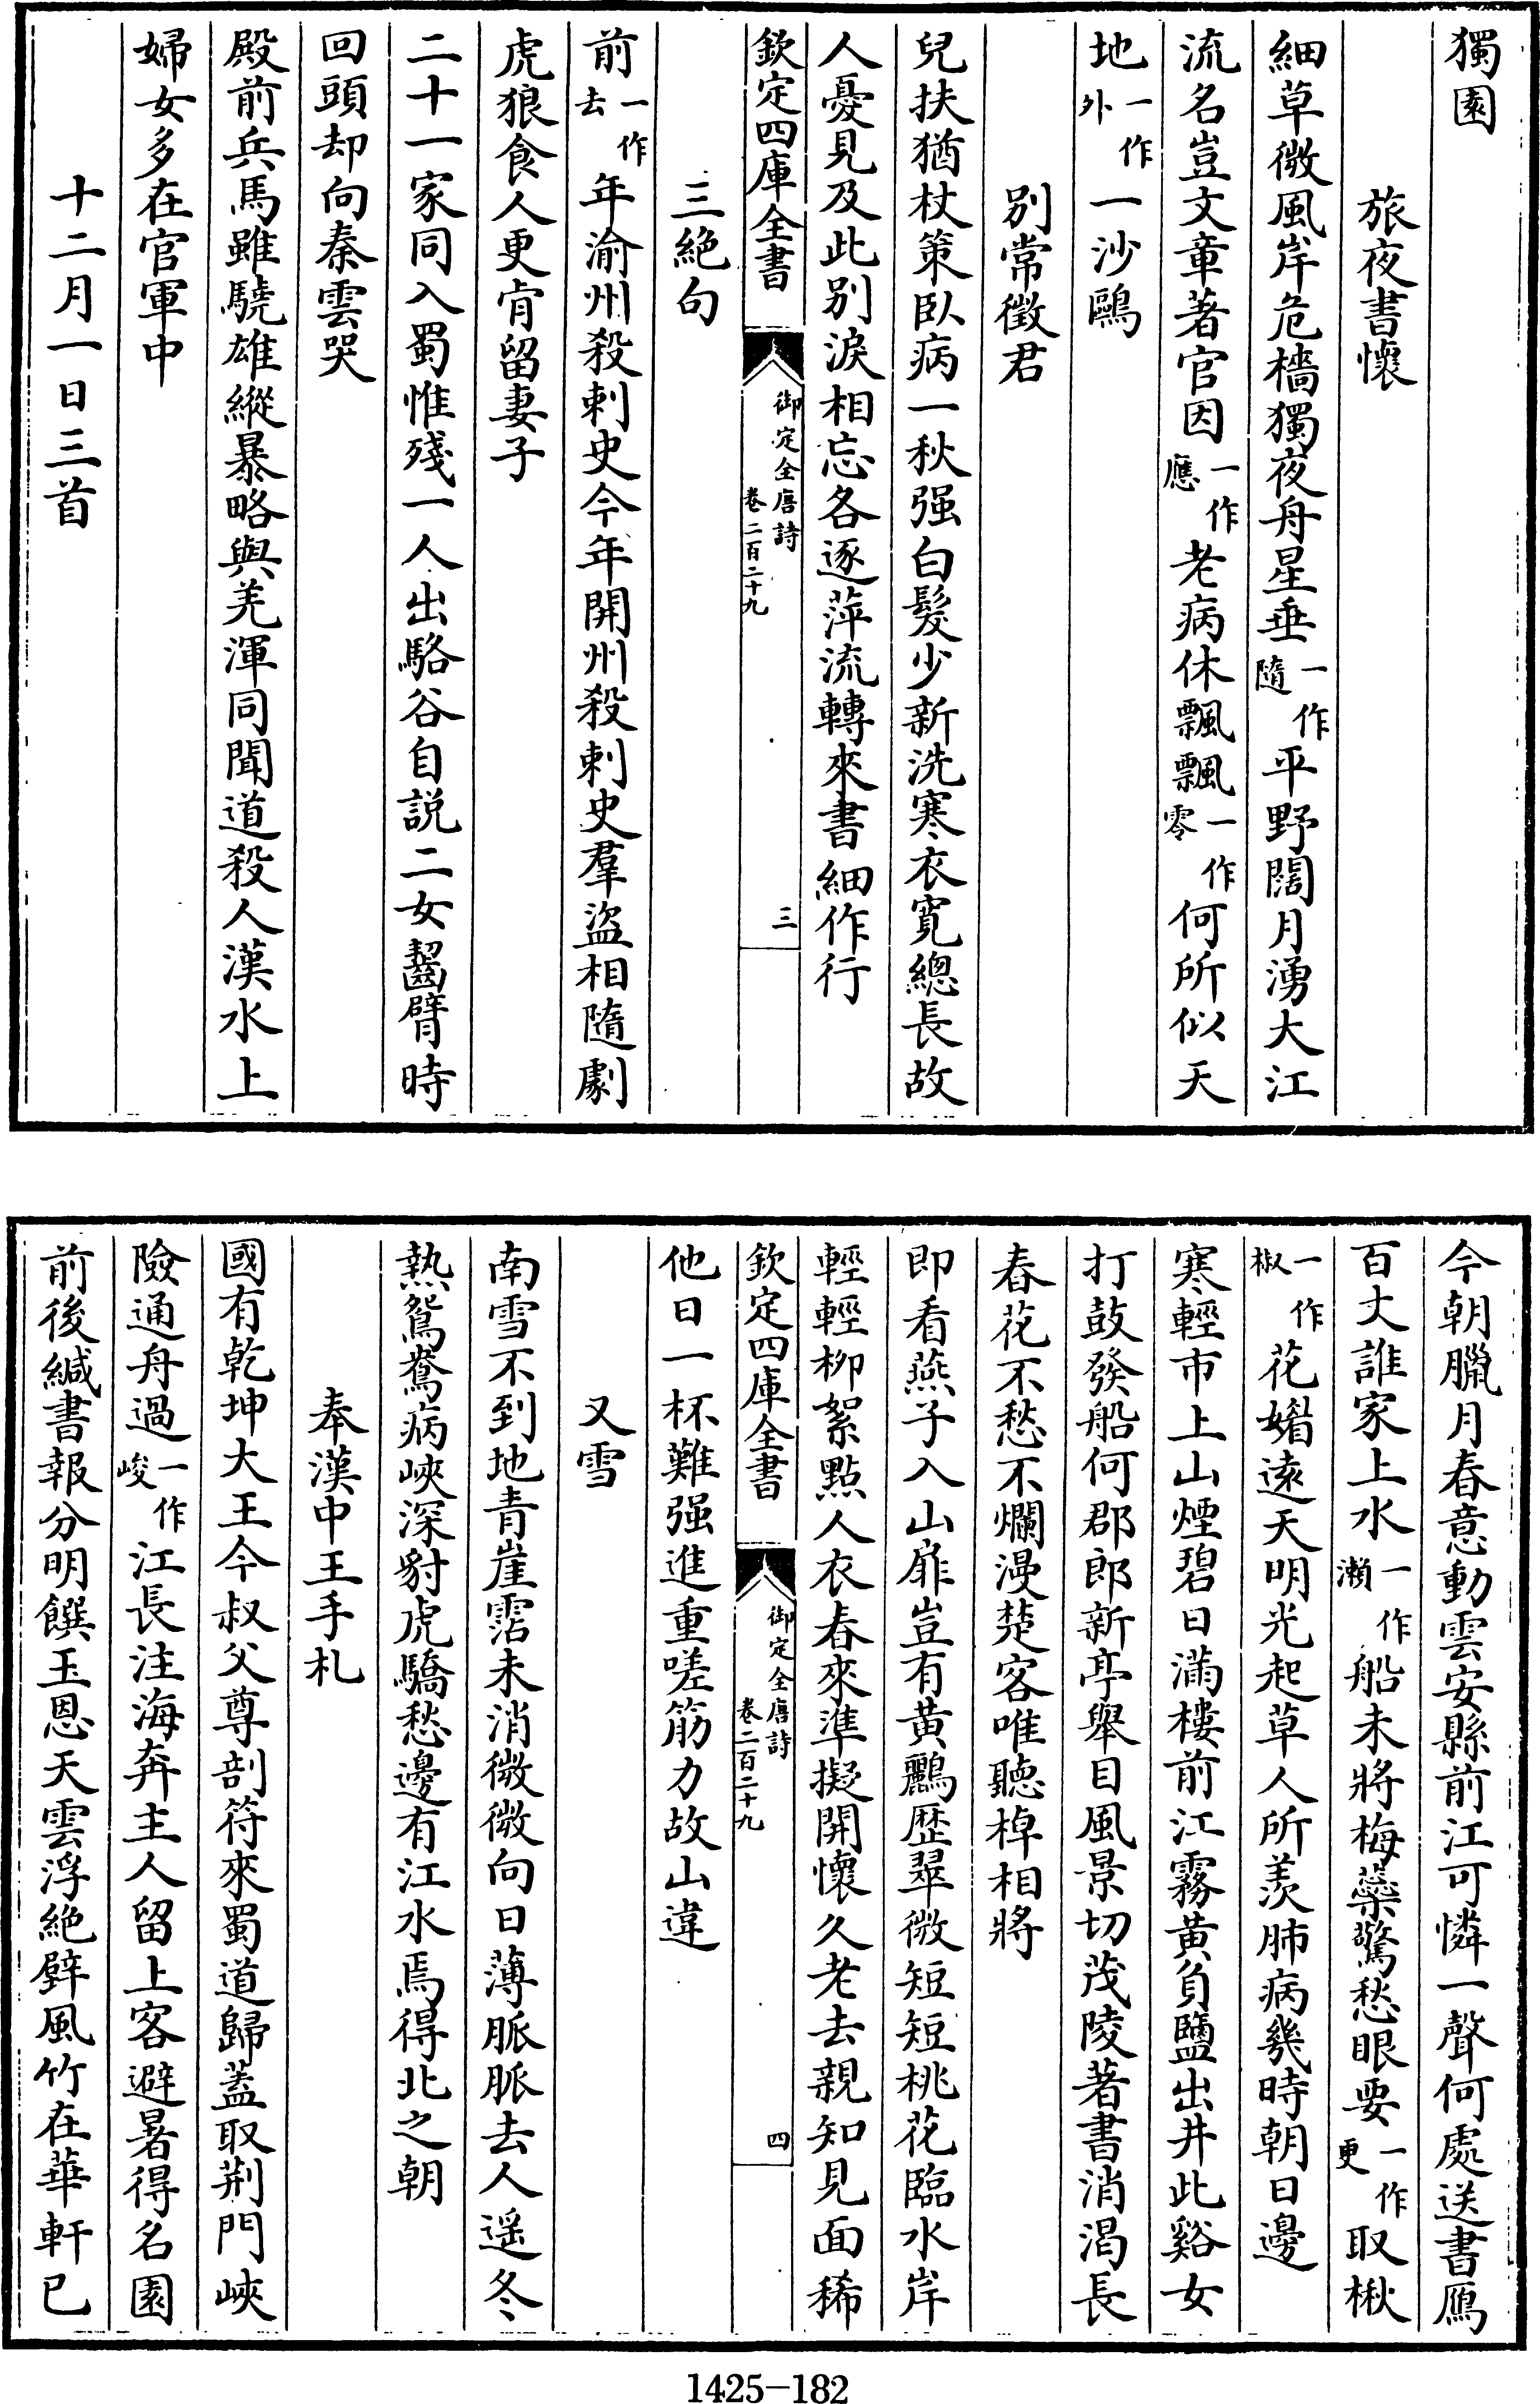 獨園
旅夜書懷
細草微風岸危檣獨夜舟星垂一作隨平野闊月湧大江
流名豈文章著官因一作應老病休飄飄一作零何所似天
地一作外一沙鷗
別常徵君
兒扶猶杖策臥病一秋强白髮少新洗寒衣寛總長故
人憂見及此別淚相忘各逐萍流轉來書細作行
欽定四庫全書
御定全唐詩
卷二百二十九
三
三絶句
前一作去年渝州殺刺史今年開州殺刺史羣盜相隨劇
虎狼食人更肯留妻子
二十一家同入蜀惟殘一人出駱谷自説二女齧臂時
回頭却向秦雲哭
殿前兵馬雖驍雄縱暴略與羌渾同聞道殺人漢水上
婦女多在官軍中
十二月一日三首
今朝臘月春意動雲安縣前江可憐一聲何處送書鴈
百丈誰家上水一作瀨船未將梅蘂驚愁眼要一作更取楸
一作椒花媚遠天明光起草人所羨肺病幾時朝日邊
寒輕市上山煙碧日滿樓前江霧黃負鹽出井此谿女
打鼓發船何郡郎新亭舉目風景切茂陵著書消渴長
春花不愁不爛漫楚客唯聽棹相將
即看燕子入山扉豈有黃鸝歴翠微短短桃花臨水岸
輕輕柳絮點人衣春來準擬開懷久老去親知見面稀
欽定四庫全書
御定全唐詩
卷二百二十九
四
他日一杯難强進重嗟筋力故山違
又雪
南雪不到地青崖霑未消微微向日薄脈脈去人遥冬
熱鴛鴦病峽深豺虎驕愁邊有江水焉得北之朝
奉漢中王手札
國有乾坤大王今叔父尊剖符來蜀道歸蓋取荆門峽
險通舟過一作峻江長注海奔主人留上客避暑得名園
前後緘書報分明饌玉恩天雲浮絶壁風竹在華軒已
1425-182